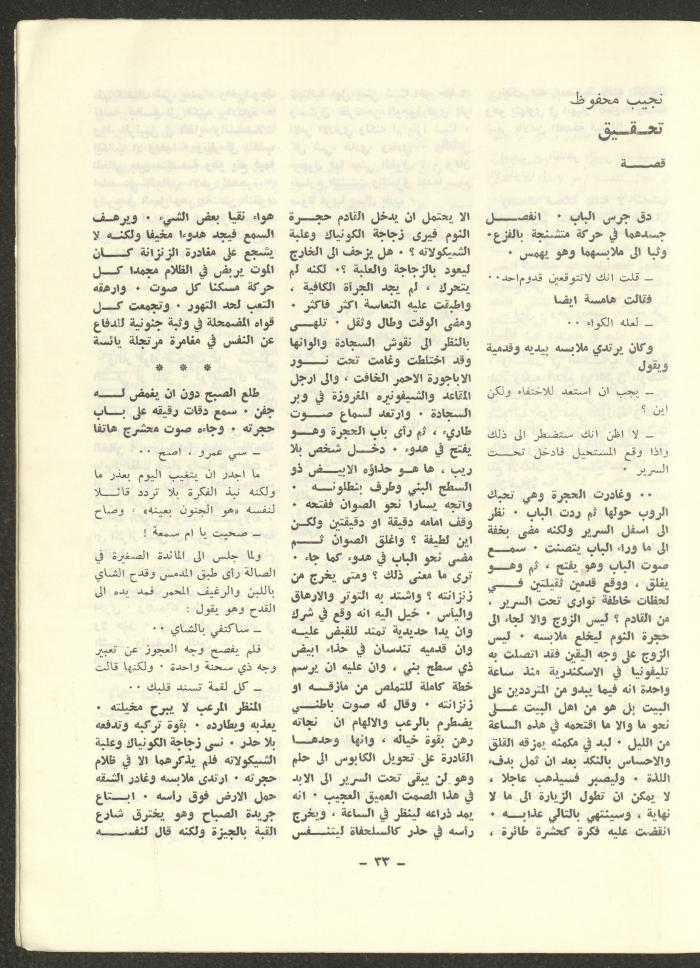 نجيب محفوظ
تحـقـيق
قصـــة
دق جرس الباب ٠ انفصـــل
جسدهما في حركة متشنجة بالفزع٠
وثبا الى ملابسهما وهو يهمس ٠
ــ قلت انك لاتتوقعين قدوم احد٠٠
فقالت هامسة ايضا
ــ لعله الكواء ٠٠
وكان يرتدي ملابسه بيديه وقدمية
ويقول
ــ يجب ان استعد للاختفاء ولكن
اين ؟
ــ لا اظن انك ستضطر الى ذلك
واذا وقع المستحيل فادخل تحـــت
السرير ٠
٠٠ وغادرت الحجرة وهي تحبك
الروب حولها ثم ردت الباب ٠ نظر
الى اسفل السرير ولكنه مضى بخفة
الى ما وراء الباب يتصنت ٠ سمـــع
صوت الباب وهو يفتح ، ثم وهـــو
يغلق ، ووقع قدمين ثقيلتين فـــي
لحظات خاطفة توارى تحت السرير ٠
من القادم ؟ ليس الزوج والا لجاء الى
حجرة النوم ليخلع ملابسه ٠ ليس
الزوج على وجه اليقين فقد اتصلت به
تليفونيا في الاسكندرية منذ ساعة
واحدة انه فيما يبدو من المترددين على
البيت بل هو من اهل البيت علـــى
نحو ما والا ما اقتحمه في هذه الساعة
من الليل ٠ لبد في مكمنه يمزقه القلق
والاحساس بالنكد بعد ان ثمل بدفء
اللذة ٠ وليصبر فسيذهب عاجلا ،
لا يمكن ان تطول الزيارة الى ما لا
نهاية ، وسينتهي بالتالي عذابـــه ٠
انقضت عليه فكرة كحشرة طائرة ،
الا يحتمل ان يدخل القادم حجـــرة
النوم فيرى زجاجة الكونياك وعلبة
الشيكولاته ؟ ٠ هل يزحف الى الخارج
ليعود بالزجاجة والعلبة ؟٠ لكنه لم
يتحرك ، لم يجد الجرأة الكافية ،
واطبقت عليه التعاسة اكثر فاكثر ٠
ومضى الوقت وطال وثقل ٠ تلهـــى
بالنظر الى نقوش السجادة والوانها
وقد اختلطت وغامت تحت نـــور
الاباجورة الاحمر الخافت ، والى ارجل
المقاعد والشيفونيره المغروزة في وبر
السجادة ٠ وارتعد لسماع صـــوت
طاريء ، ثم رأى باب الحجرة وهـــو
يفتح في هدوء ٠ دخـــل شخص بلا
ريب ، ها هـــو حذاؤه الابيـــض ذو
السطح البني وطرف بنطلونـــه ٠
واتجه يسارا نحو الصوان ففتحه ٠
وقف امامه دقيقة او دقيقتين ولكـــن
اين لطيفة ؟ واغلق الصوان ثـــم
مضى نحو الباب في هدوء كما جاء ٠
ترى ما معنى ذلك ؟ ومتى يخرج من
زنزانته ؟ واشتد به التوتر والارهاق
واليأس ٠ خيل اليه انه وقع في شرك
وان يدا حديدية تمتد للقبض عليـــه
وان قدميه تندسان في حذاء ابيض
ذي سطح بني ، وان عليه ان يرسم
خطة كاملة للتملص من مأزقـــه او
زنزانته ٠ وقال له صوت باطنـــي
يضطرم بالرعب والالهام ان نجاته
رهن بقوة خياله ، وانها وحدهـــا
القادرة على تحويل الكابوس الى حلم
وهو لن يبقى تحت السرير الى الابد
في هذا الصمت العميق العجيب ٠ انه
يمد ذراعه لينظر في الساعة ، ويخرج
رأسه في حذر كالسلحفاة ليتنـــفس
هواء نقيا بعض الشيء ٠ ويرهـــف
السمع فيجد هدوءا مخيفا ولكنـــه لا
يشجع على مغادرة الزنزانة كـــان
الموت يربض في الظلام مجمدا كـــل
حركة مسكتا كل صوت ٠ وارهقه
التعب لحد التهور ٠ وتجمعت كـــل
قواه المضمحلة في وثبة جنونية للدفاع
عن النفس في مغامرة مرتجلة يائسة
* * *
طلع الصبح دون ان يغمض لـــه
جفن ٠ سمع دقات رقيقه على بـــاب
حجرته ٠ وجاءه صوت محشرج هاتفا
ــ سي عمرو ، اصح ٠٠
ما اجدر ان يتغيب اليوم بعذر ما
ولكنه نبذ الفكرة بلا تردد قائـــلا
لنفسه «هو الجنون بعينه» ٠ وصاح
ــ صحيت يا ام سمعة !
ولما جلس الى المائدة الصغيرة في
الصالة رأى طبق المدمس وقدح الشاي
باللبن والرغيف المحمر فمد يده الى
القدح وهو يقول :
ــ ساكتفي بالشاي ٠٠
فلم يفصح وجه العجوز عن تعبير
وجه ذي سحنة واحدة ٠ ولكنها قالت
ــ كل لقمة تسند قلبك ٠٠
المنظر المرعب لا يبرح مخيلته ٠
يعذبه ويطارده ٠ بقوة تركبه وتدفعه
بلا حذر ٠ نسي زجاجة الكونياك وعلبة
الشيكولاته فلم يذكرهما الا في ظلام
حجرته ٠ ارتدى ملابسه وغادر الشقه
حمل الارض فوق رأسه ٠ ابـــتاع
جريدة الصباح وهو يخترق شارع
القبة بالجيزة ولكنه قال لنفســـه
ــ ٣٣ ــ